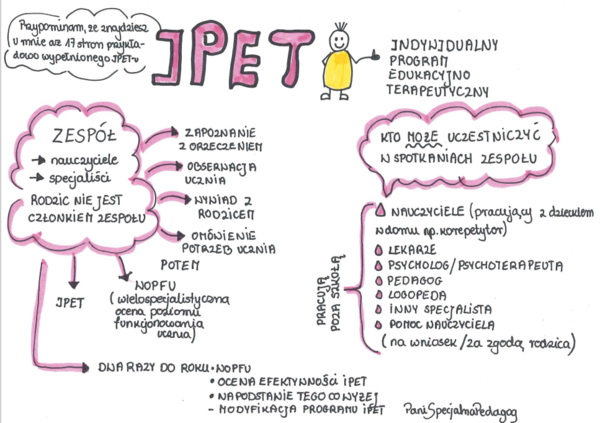 Przypominam, że znajdziesz
u mnie aż 17 stron przykła-
dowo wypełnionego IPET-u
IPET
INDYWIDUALNY
PROGRAM
EDUKACYJNO
TERAPEUTYCZNY
ZESPÓŁ
→ nauczyciele
→ specjaliści
RODZIC NIE JEST
CZŁONKIEM ZESPOŁU
ZAPOZNANIE
Z ORZECZENIEM
OBSERWACJA
UCZNIA
WYWIAD Z
RODZICEM
OMÓWIENIE
POTRZEB UCZNIA
POTEM
IPET
WOPFU
(wielospecjalistyczna
ocena poziomu
funkcjonowania
ucznia)
DWA RAZY DO ROKU • WOPFU
• OCENA EFEKTYWNOŚCI IPET
• NA PODSTAWIE TEGO CO WYŻEJ
- MODYFIKACJA PROGRAMU IPET
KTO MOŻE UCZESTNICZYĆ
W SPOTKANIACH ZESPOŁU
PRACUJĄ
POZA SZKOŁĄ
NAUCZYCIELE (pracujący z dzieckiem
w domu np. korepetytor)
LEKARZE
PSYCHOLOG/PSYCHOTERAPEUTA
PEDAGOG
LOGOPEDA
INNY SPECJALISTA
POMOC NAUCZYCIELA
(na wniosek/za zgodą rodzica)
PaniSpecjalnaPedagog